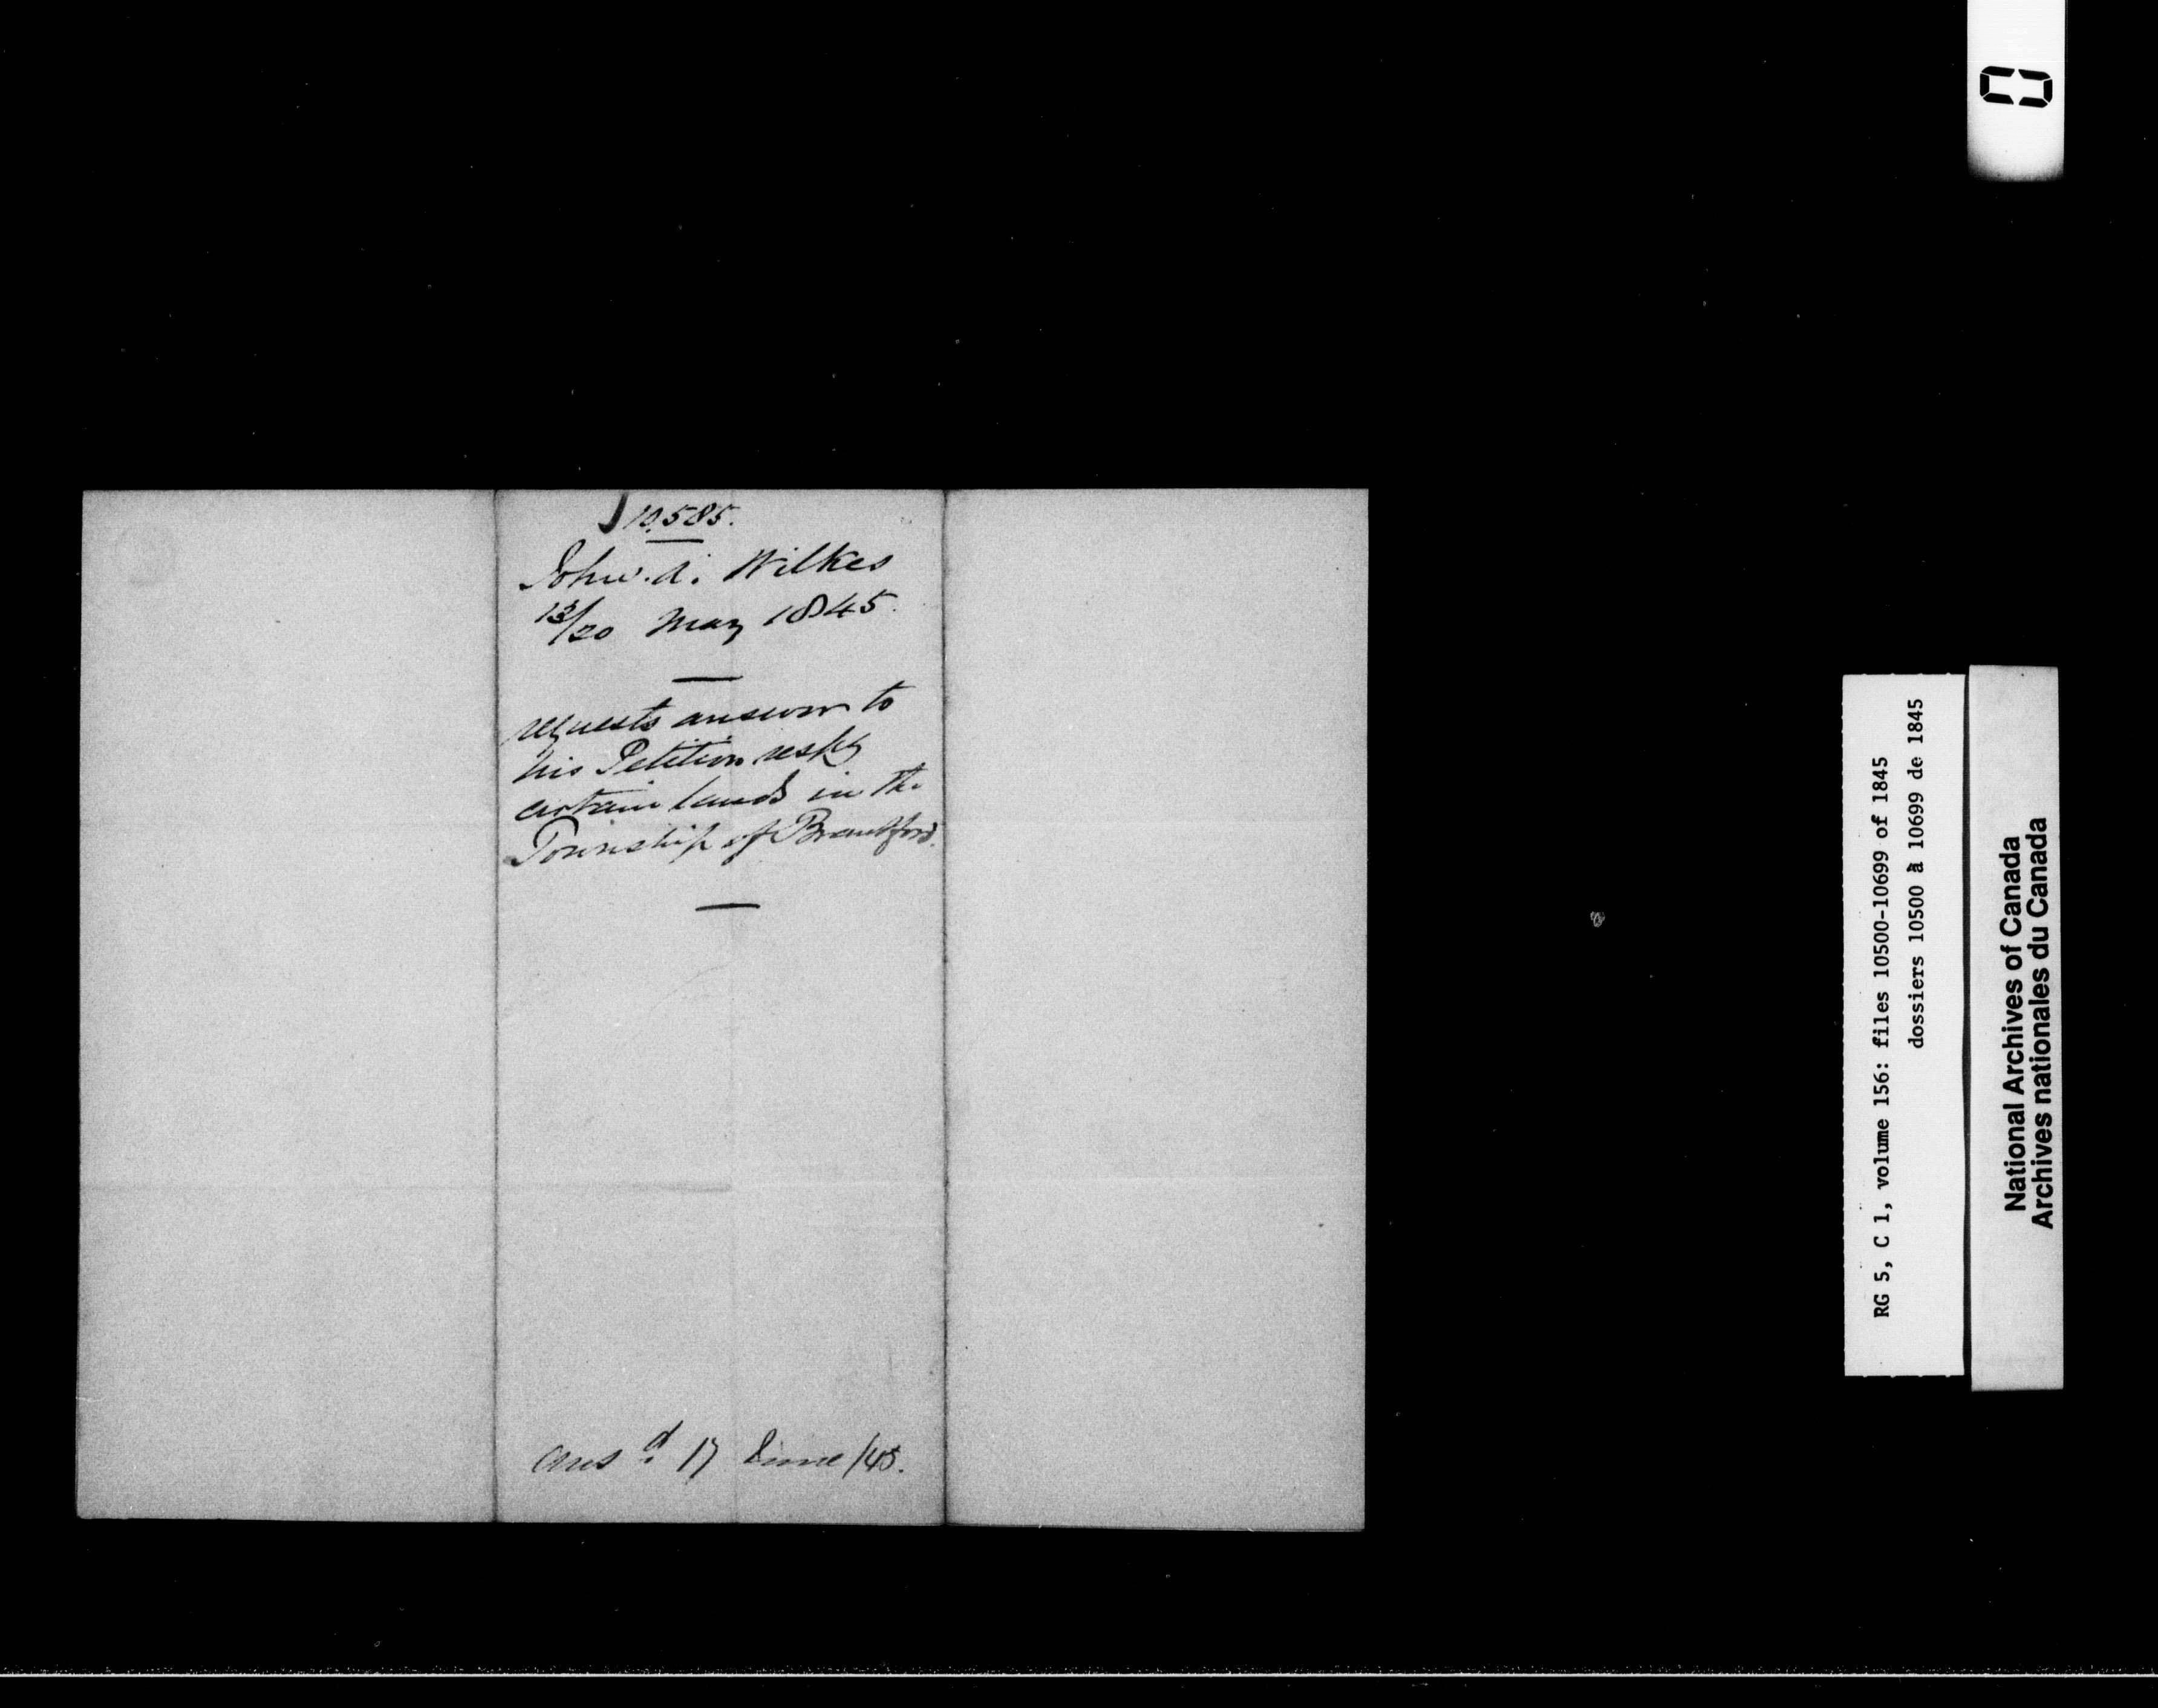 10.585.
John. A. Wilkes
13/20 May 1845.
requests answer to
his Petition respg
certain lands in the
Township of Brantford.
Ansd 17 June /45.
RG 5, C 1, volume 156: files 10500-10699 of 1845
dossiers 10500 à 10699 de 1845
National Archives of Canada
Archives nationales du Canada